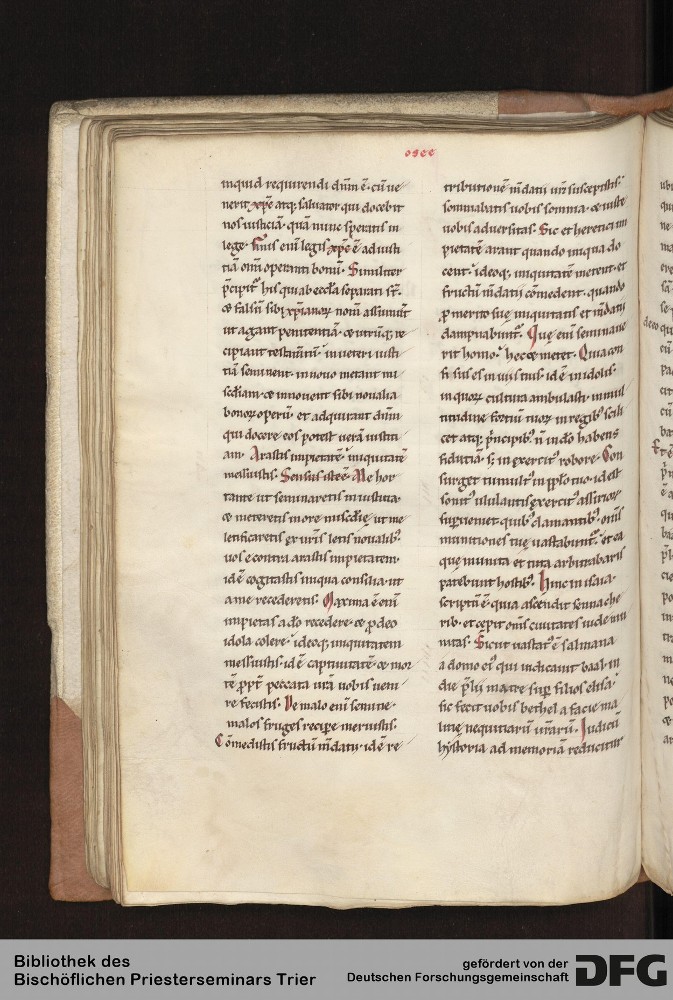 osee
inquid requirendi dn̄m ē. cū ue
nerit xp̄c atq; saluator qui docebit
nos iusticiā. quā nunc speratis in
lege. finis eni legis xp̄c ē ad iusti
tiā om̄i operanti bonū. Similiter
p̄cipit his qui ab eccl̄a separati st̄.
⁊ falsū sibi xp̄ianoꝝ nom̄ assumūt
ut agant penitentiā. ⁊ utrūq; re
cipiant testam̄tū. in ueteri iusti
tiā seminent. in nouo metant mi
sc̄diam. ⁊ innouent sibi noualia
bonoꝝ operū. et adquirant dn̄m
qui docere eos potest uerā iustici
am. Arastis impietatē. iniquitatē
messuistis. Sensus iste ē. Me hor
tante ut seminaretis in iusticia.
⁊ meteretis in ore misc̄die ut me
letificaretis ex ur̄is letis noualib;
uos e contra arastis impietatem.
id ē cogitastis iniqua consilia. ut
a me recederetis. Maxima ē eni
impietas a do recedere. ⁊ p deo
idola colere. ideoq; iniquitatem
messuistis. id ē captiuitatē ⁊ mor
tē ꝓpt̄ peccata ur̄a uobis ueni
re fecistis. De malo eni semine.
malos fruges recipe meruistis.
Cōmedistis fructū m̄datii. id ē re
tributionē m̄datii ur̄i suscepistis.
somniabatis uobis somnia. ⁊ iuste
uobis aduersitas. Sic et heretici im
pietatē arant quando iniqua do
cent. ideoq; iniquitatē metent. et
fructū m̄datii cōmedent. quando
ꝓ merito sue iniquitatis et m̄datii
dampnabunt͛. Que eni seminaue
rit homo. hec ⁊ metet. Quia con
fisus es in uiis tuis. id ē in idolis.
in quoꝝ cultura ambulasti. in mul
titudine fortiū tuoꝝ in regib; scili
cet atq; p̄ncipib; n̄ in dō habens
fiduciā. s; in exercit; robore. Con
surget tumult; in pplo tuo. id est
sonit; ululantis exercit; assirioꝝ
superueniet. quib; clamantib; om̄s
munitiones tue uastabunt͛. et ea
que munita et tuta arbitrabaris
patebunt hostib;. Hinc in isaia.
scriptū ē. quia ascendit sennache
rib. et cepit om̄s ciuitates iude mu
nitas. Sicut uastat; ē salmana
a domo ei; qui iudicauit baal. in
die p̄lii matre sup filios elisa.
sic fecit uobis bethel a facie ma
litie nequitiarū ur̄arū. Iudicū
hystoria ad memoriā reducitur
Bibliothek des
Bischöflichen Priesterseminars Trier
gefördert von der
Deutschen Forschungsgemeinschaft
DFG